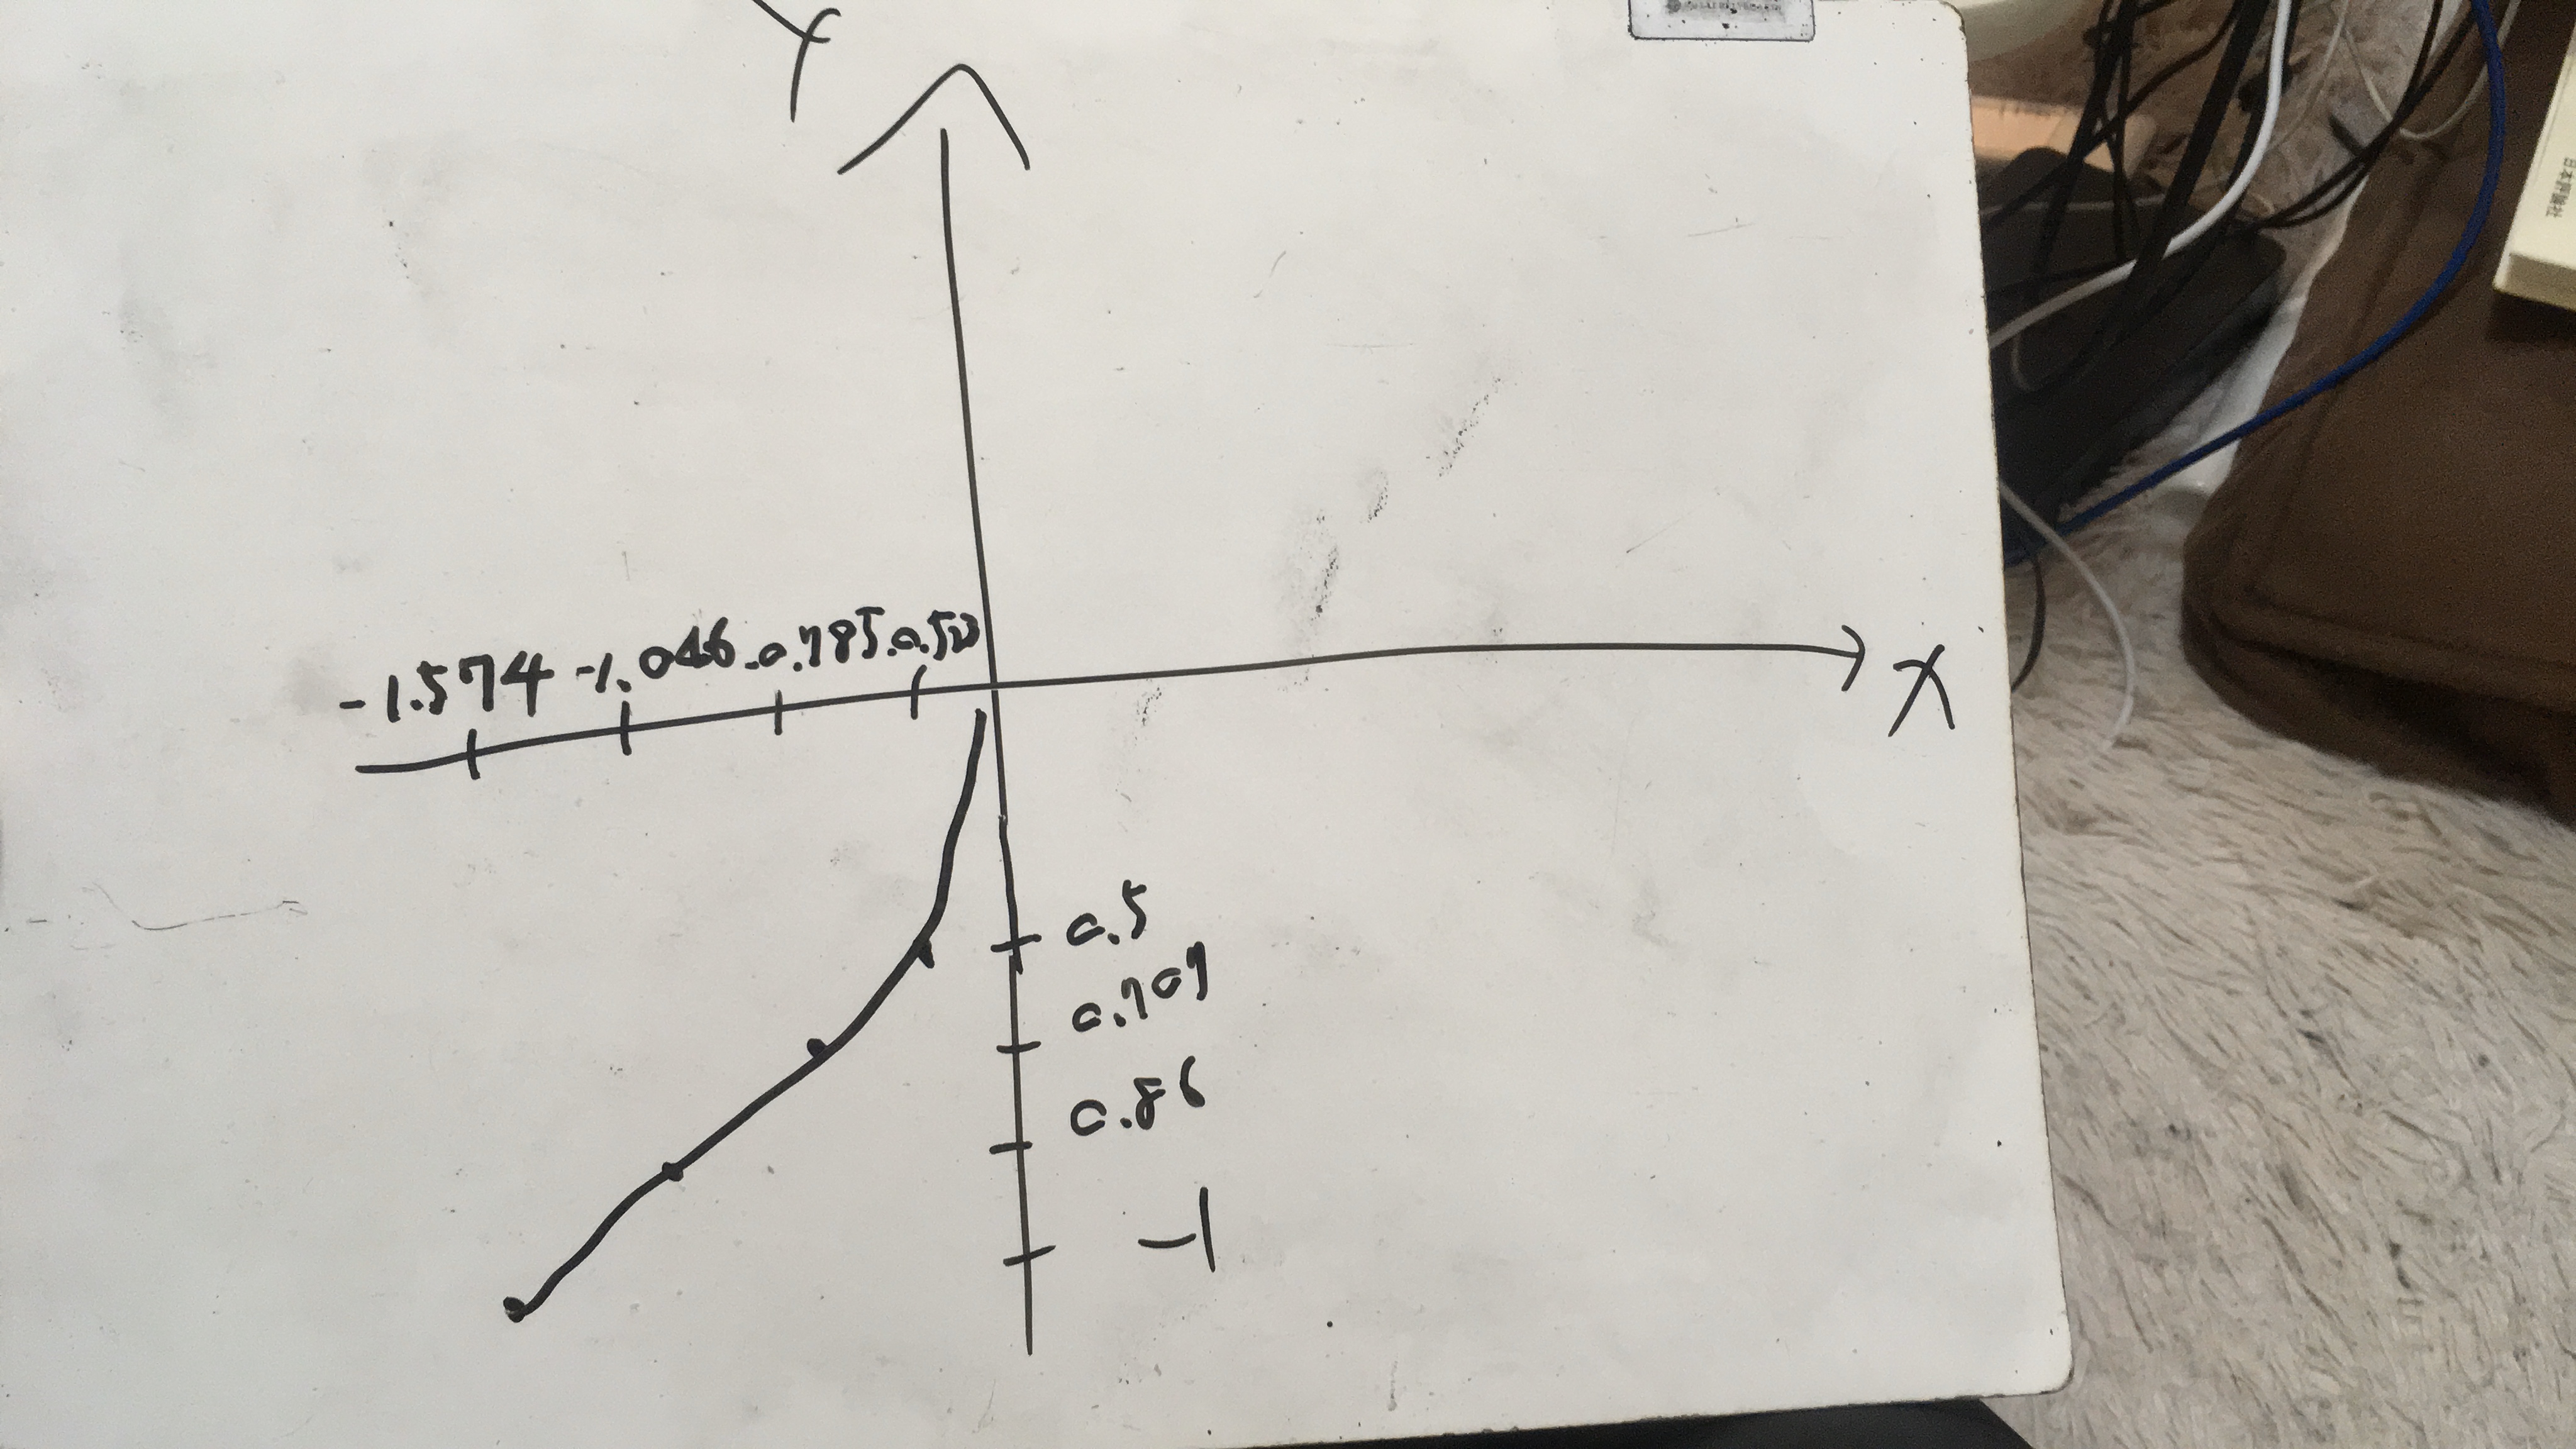 Y
-1.574 -1.046 -0.785 -0.523
X
0.5
0.707
0.86
-1
日本評論社